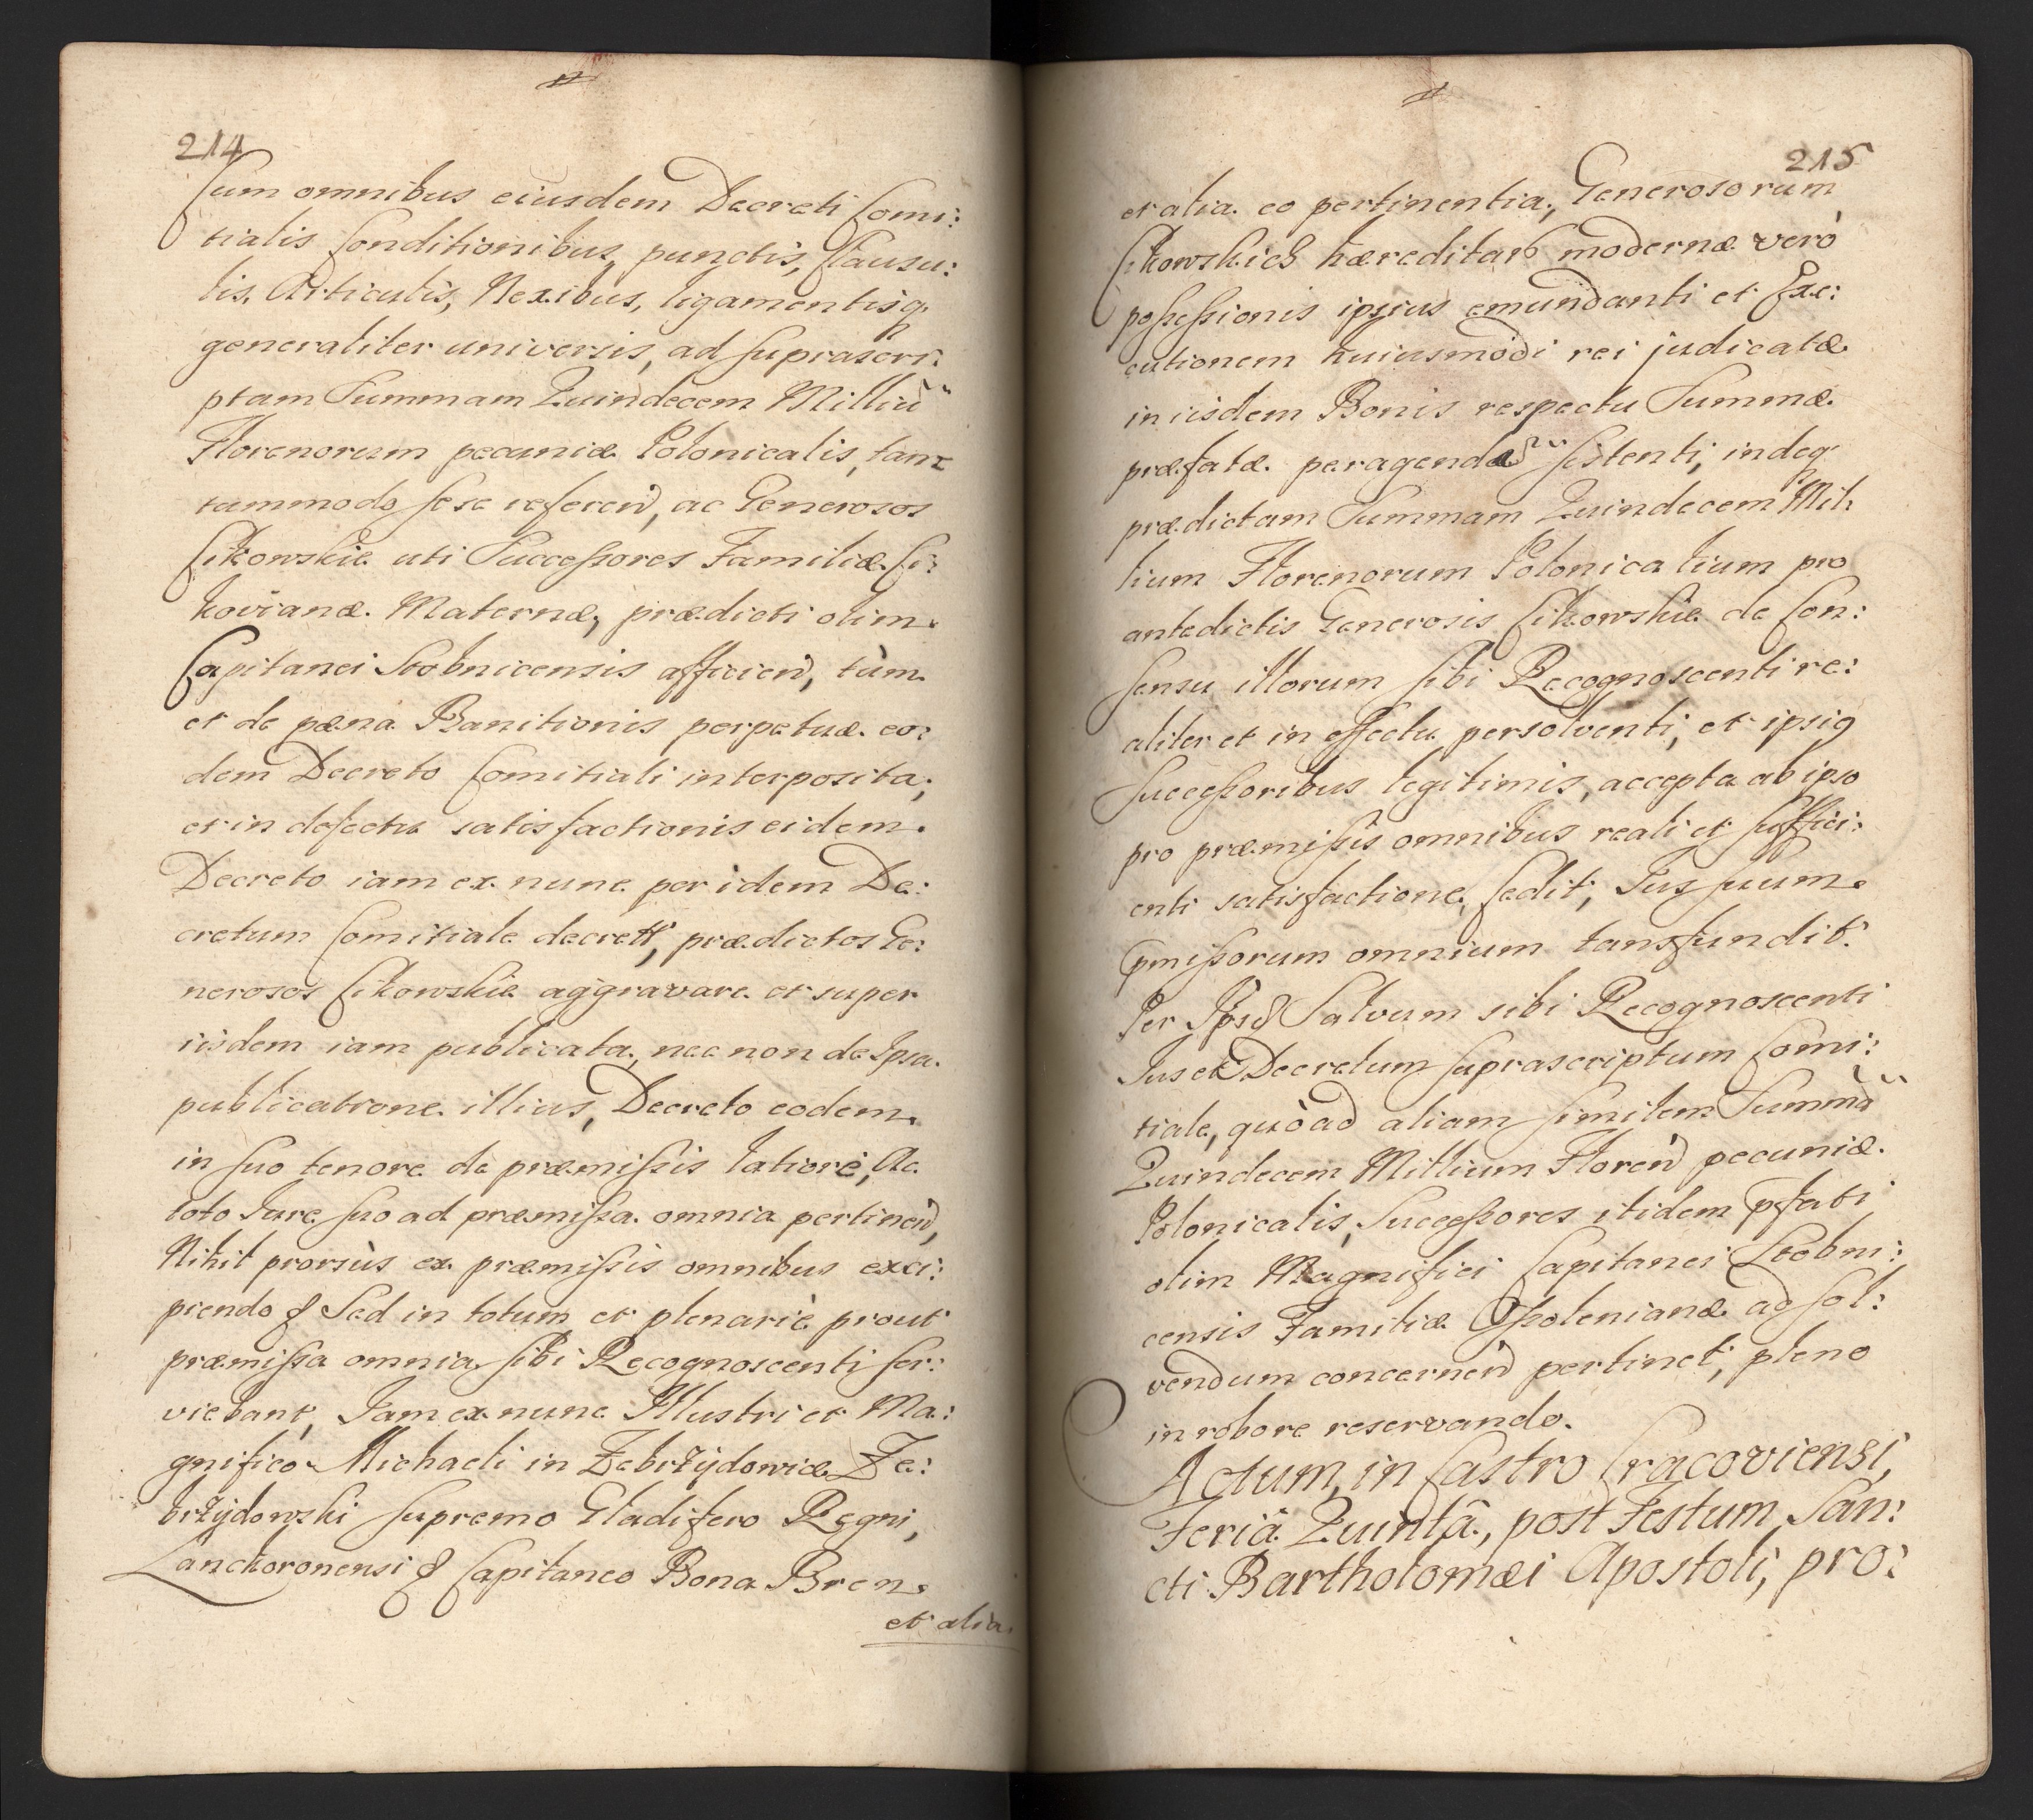 214
Cum omnibus eiusdem Decreti Comi:
tialis Conditionibus, punctis, Clausu:
lis, Articulis, Nexibus, ligamentisq.
generaliter universis, ad suprascri:
ptam Summam Quindecem Milliũ
Florenorum pecuniæ Polonicalis, tan:
tummodo sese referen̄, ac Generosos
Cikowskie uti Successores Familiæ Ci:
kovianæ Maternæ, prædicti olim
Capitanei Stobnicensis afficien̄, tùm
et de pæna Banitionis perpetuæ eo:
dem Decreto Comitiali interposita,
et in defectu satisfactionis eidem
Decreto iam ex nunc per idem De:
cretum Comitiale decrett, prædictos Ge:
nerosos Cikowskie aggravare et super
iisdem iam publicata, nec non de Ipsa
publicatione illius, Decreto eodem
in suo tenore de præmissis latiore, Ac
toto Jure suo ad præmissa omnia pertinen̄,
Nihil prorsùs ex præmissis omnibus exci:
piendo & Sed in totum et plenariè prout
præmissa omnia sibi Recognoscenti ser:
viebant, Jam ex nunc Illustri et Ma:
gnifico Michaeli in Zebrżydowice Ze:
brżydowski supremo Gladifero Regni,
Lanckoronensi & Capitaneo Bona Bren
et alia
215
et alia eo pertinentia, Generosorum
Cikowskich hæreditar modernæ verò
possessionis ipsius emundanti et Exe:
cutionem huiusmodi rei judicatæ
in iisdem Bonis respectu Summæ
præfatæ peragendã sistenti, indeq.
prædictam Summam Quindecem Mil:
lium Florenorum Polonicalium pro
antedictis Generosis Cikowskie de Con:
sensu illorum sibi Recognoscenti re:
aliter et in effectu persolventi, et ipsig
Successoribus legitimis, accepta ab ipso
pro præmissis omnibus reali et suffici:
enti satisfactione, Cedit, Jus suum
pmissorum omnium tansfundit.
Per Ipsos Salvum sibi Recognoscenti
Jus et Decretum suprascriptum Comi:
tiale, quòad aliam similem Summã
Quindecem Millium Floren̄ pecuniæ
Polonicalis, Successores itidem pfati
olim Magnifici Capitanei Stobni:
censis Familiæ Ossolenianæ ad sol:
vendum concernen̄ pertinet, pleno
in robore reservando.
Actum in Castro Cracoviensi,
Feriâ Quintâ, post Festum San:
cti Bartholomæi Apostoli, pro: